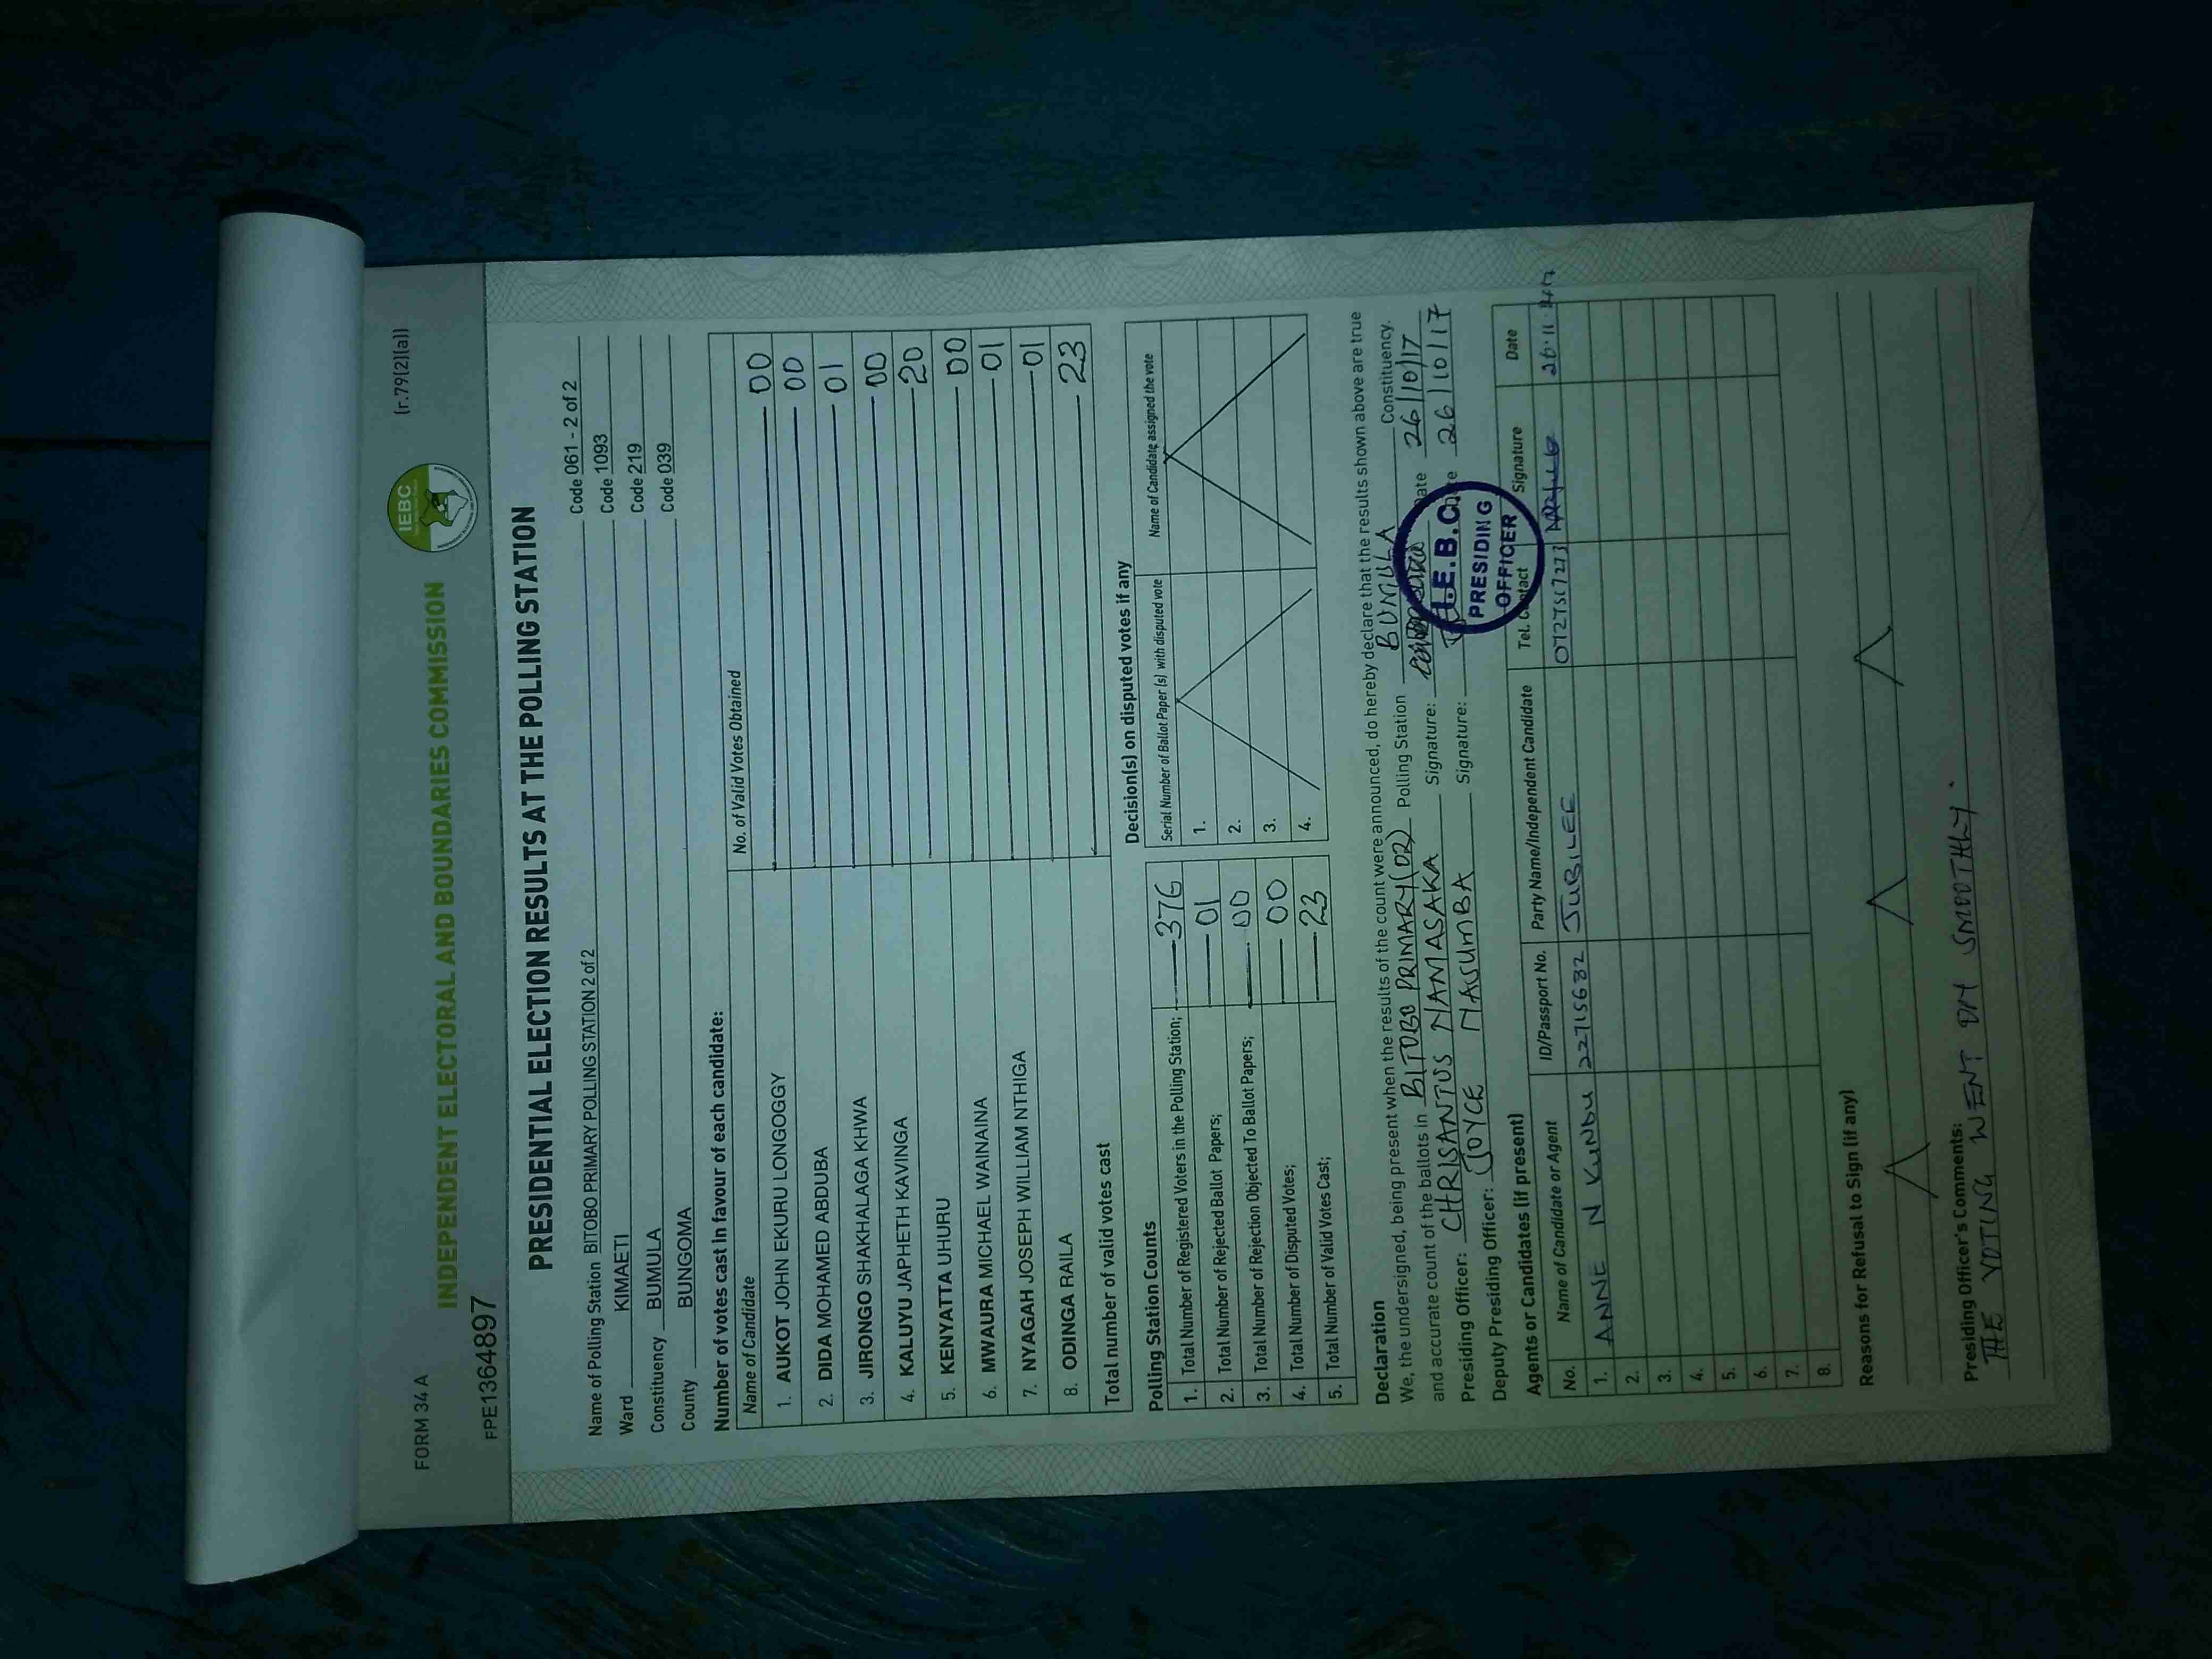 FORM 34 A
(r.79(2)(a))
INDEPENDENT ELECTORAL AND BOUNDARIES COMMISSION
IEBC
FPE1364897
PRESIDENTIAL ELECTION RESULTS AT THE POLLING STATION
Name of Polling Station BITOBO PRIMARY POLLING STATION 2 of 2 Code 061 - 2 of 2
Ward KIMAETI Code 1093
Constituency BUMULA Code 219
County BUNGOMA Code 039
Number of votes cast in favour of each candidate:
Name of Candidate No. of Valid Votes Obtained
1. AUKOT JOHN EKURU LONGOGGY 00
2. DIDA MOHAMED ABDUBA 00
3. JIRONGO SHAKHALAGA KHWA 01
4. KALUYU JAPHETH KAVINGA 00
5. KENYATTA UHURU 20
6. MWAURA MICHAEL WAINAINA 00
7. NYAGAH JOSEPH WILLIAM NTHIGA 01
8. ODINGA RAILA 01
Total number of valid votes cast 23
Polling Station Counts
1. Total Number of Registered Voters in the Polling Station; 376
2. Total Number of Rejected Ballot Papers; 01
3. Total Number of Rejection Objected To Ballot Papers; 00
4. Total Number of Disputed Votes; 00
5. Total Number of Valid Votes Cast; 23
Decision(s) on disputed votes if any
Serial Number of Ballot Paper (s) with disputed vote Name of Candidate assigned the vote
1.
2.
3.
4.
Declaration
We, the undersigned, being present when the results of the count were announced, do hereby declare that the results shown above are true
and accurate count of the ballots in BITOBO PRIMARY (02) Polling Station BUMULA Constituency.
Presiding Officer: CHRISANTUS NAMASAKA Signature: Date 26/10/17
Deputy Presiding Officer: JOYCE NASUMBA Signature: 26/10/17
I.E.B.C.
PRESIDING
OFFICER
Agents or Candidates (if present)
No. Name of Candidate or Agent ID/Passport No. Party Name/Independent Candidate Tel. Contact Signature Date
1. ANNE N KUNDU 22715632 JUBILEE
2.
3.
4.
5.
6.
7.
8.
Reasons for Refusal to Sign (if any)
Presiding Officer's Comments:
THE VOTING WENT ON SMOOTHLY.